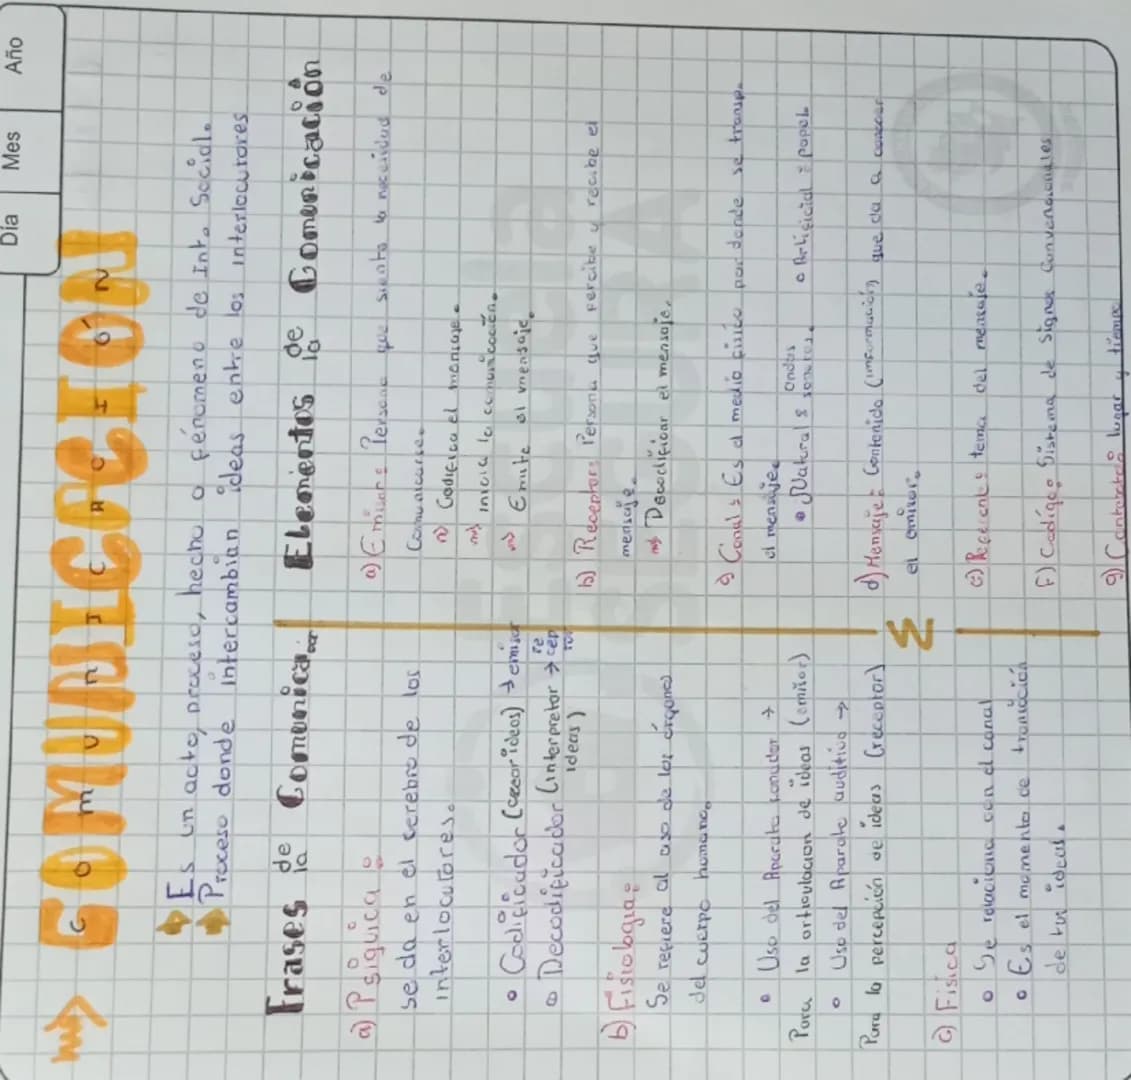 Día Mes Año
COMUNICACIÓN
Es un acto, proceso, hecho o fénomeno de Int. Social.
Proceso donde intercambian ideas entre los interlocutores
Frases de la Comunica...
a) Psíquica:
se da en el cerebro de los
interlocutores.
Codificador (crear ideas) → emisor
Decodificador (interpretar → receptor
ideas)
b) Fisiologia:
Se refiere al uso de los órganos
del cuerpo humano.
Uso del Aparato fonador →
Para la articulacion de ideas (emisor)
Uso del Aparato auditivo →
Para la percepción de ideas (receptor)
c) Física
Se relaciona con el canal
Es el momento de
de las ideas.
Elementos de la Comunicación
a) Emisor: Persona que siente la necesidad de
Comunicarse.
Codifica el mensaje.
Inicia la comunicación.
Emite el mensaje.
b) Receptor: Persona que percibe y recibe el
mensaje.
Decodificar el mensaje.
c) Canal: Es el medio físico por donde se transp.
el mensaje.
Natural: Ondas sonoras.
Artificial: papel
d) Mensaje: Contenido (información) que da a conocer
el emisor.
e) Referente: tema del mensaje.
F) Codigo: Sistema de signos Convencionales
g) Contexto: lugar y tiempo
Escuela
SEGURA